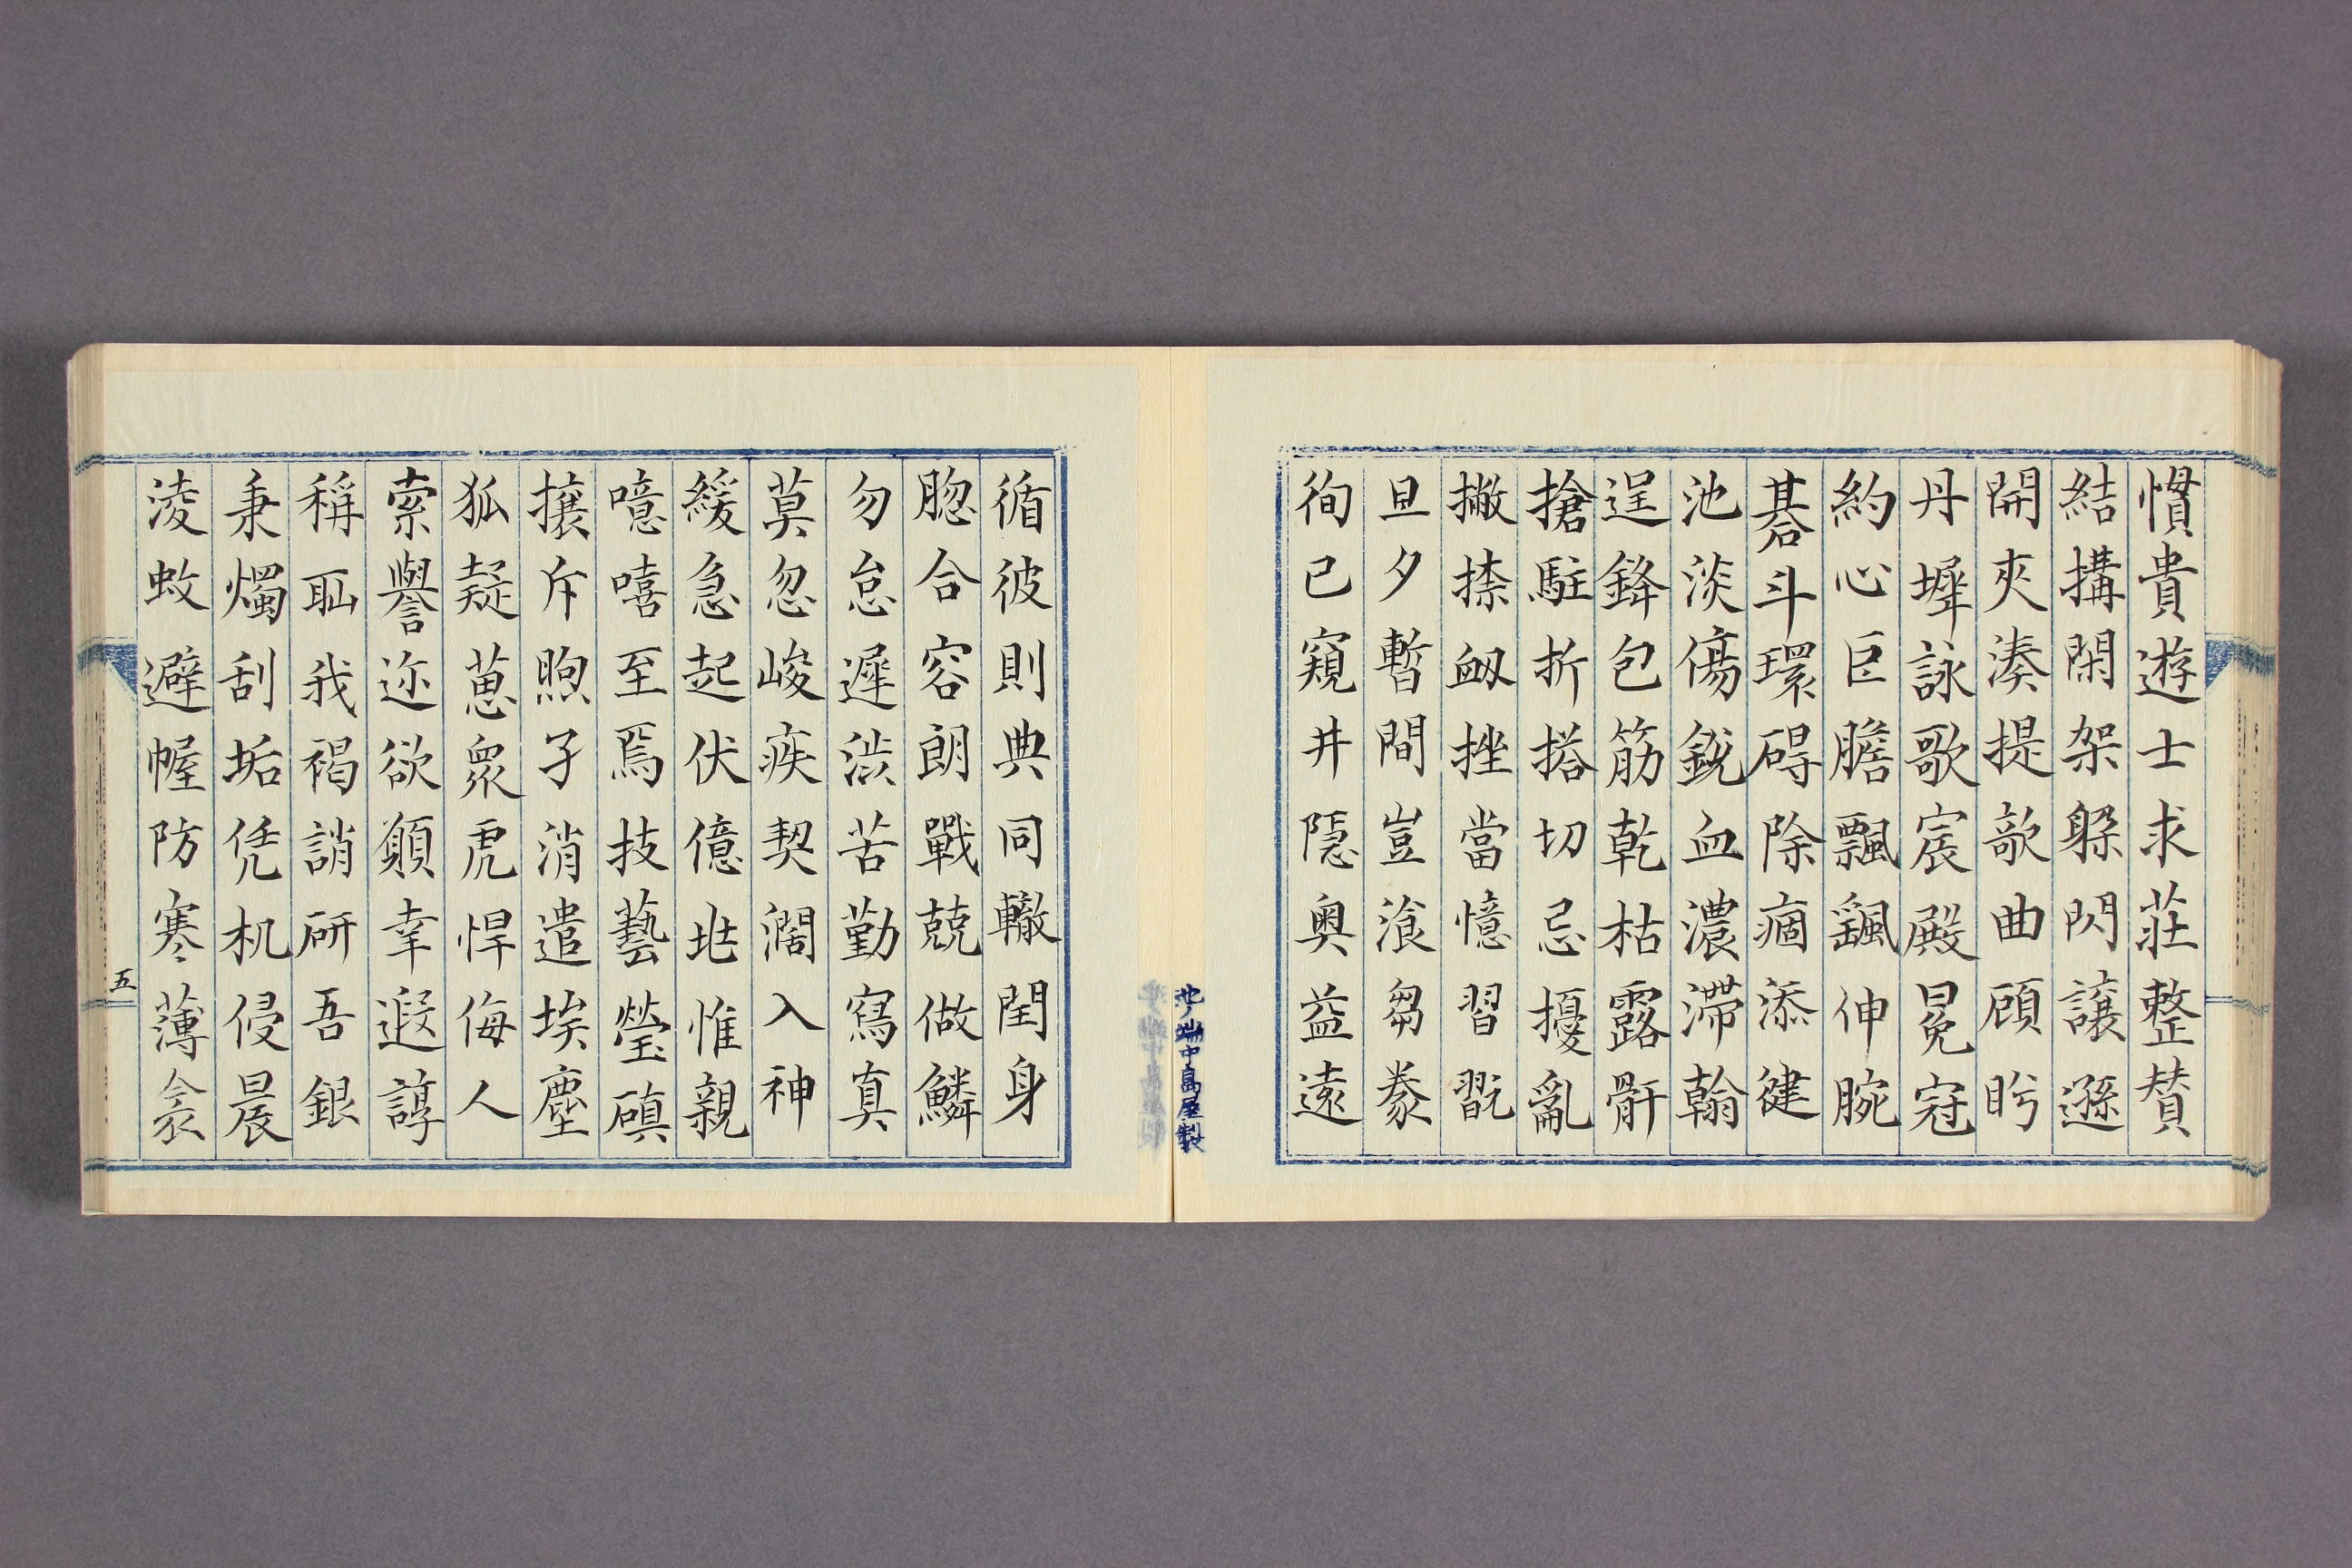 慣貴遊士求莊整賛
結搆閑架躱閃讓遜
開夾湊提歌曲顧眄
丹墀詠歌宸殿冕冠
約心巨膽飄颻伸腕
碁斗環碍除痼添健
池淡傷銳血濃滯翰
逞鋒包筋乾枯露骭
搶駐折搭切忌擾亂
撇捺衂挫當憶習翫
旦夕暫間豈飡芻豢
徇已窺井隱奧益遠
循彼則典同轍閏身
脗合容朗戰兢做鱗
勿怠遲澁苦勤寫真
莫忽峻疾契濶入神
緩急起伏億兆惟親
噫嘻至焉技藝瑩磌
攘斥煦孑消遣埃塵
狐疑葸衆虎悍侮人
索譽迩欲願幸遐諄
稱耻我褐誚研吾銀
秉燭刮垢凭机侵晨
凌蚊避幄防寒薄衾
五
池ノ端中島屋製